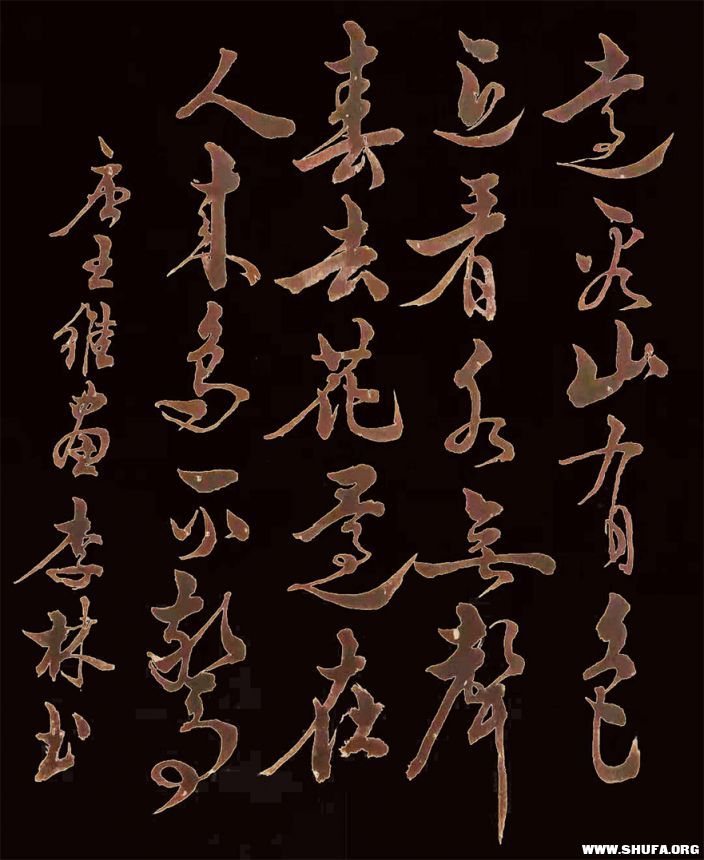 遠看山有色
近看水無聲
春去花還在
人来鳥不驚
唐王維畫李林书
WWW.SHUFA.ORG